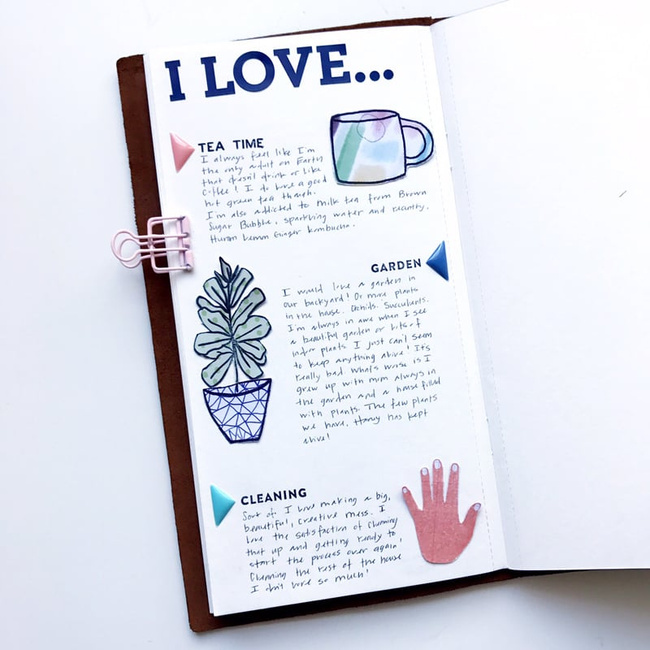 I LOVE...
TEA TIME
I always feel like I'm
the only adult on Earth
that doesn't drink or like
coffee! I do love a good
hot green tea though.
I'm also addicted to milk tea from Brown
Sugar Bubble, sparkling water and recently,
Human Lemon Ginger kombucha.
GARDEN
I would love a garden in
our backyard! Or more plants
in the house. Orchids. Succulents.
I'm always in awe when I see
a beautiful garden or lots of
indoor plants I just can't seem
to keep anything alive! It's
really bad. What's worse is I
grew up with mom always in
the garden and a house filled
with plants. The few plants
we have, Harvy has kept
alive!
CLEANING
Sort of. I love making a big,
beautiful, creative mess. I
love the satisfaction of cleaning
that up and getting ready to
start the process over again!
Cleaning the rest of the house
I don't love so much!